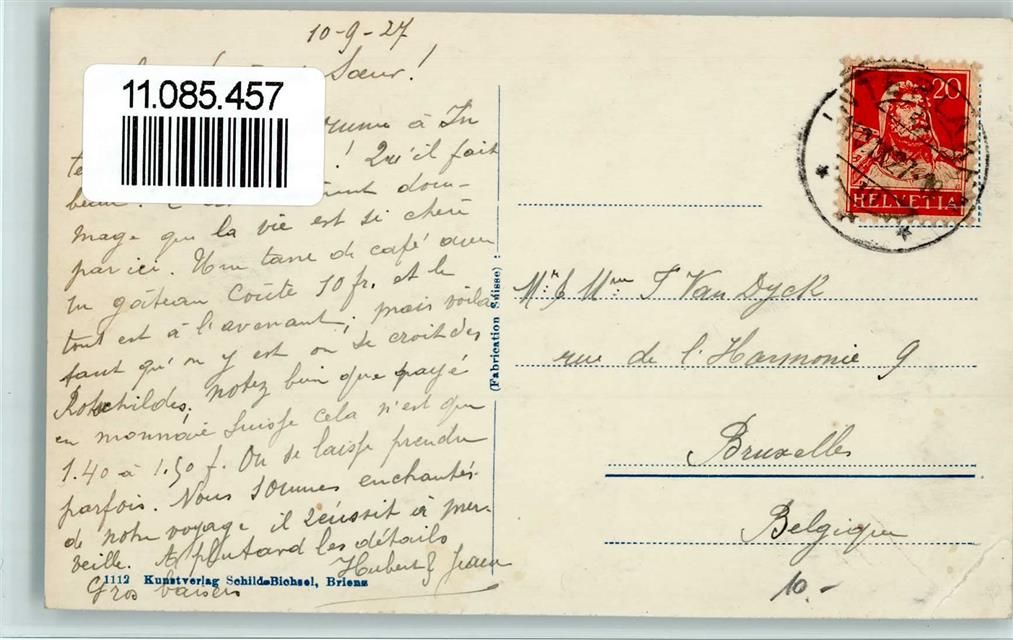 10-9-27
Sœur!
11.085.457
à In
! Qu'il fait
dom-
mage que la vie est si chère
par ici. Une tasse de café avec
un gâteau coûte 10 fr. et le
tout est à l'avenant; mais voilà
tant qu'on y est on se croit des
Rotschildes. Notez bien que payé
en monnaie Suisse cela n'est que
1.40 à 1.50 f. On se laisse prendre
parfois. Nous sommes enchantés
de notre voyage il réussit à mer-
veille. A plutard les détails
Hubert & Jean
Gros baisers
1112 Kunstverlag Schild-Bichsel, Brienz
(Fabrication Suisse) :
20
HELVETIA
Mr & Mme F Van Dyck
rue de l'Harmonie 9
Bruxelles
Belgique
10.-